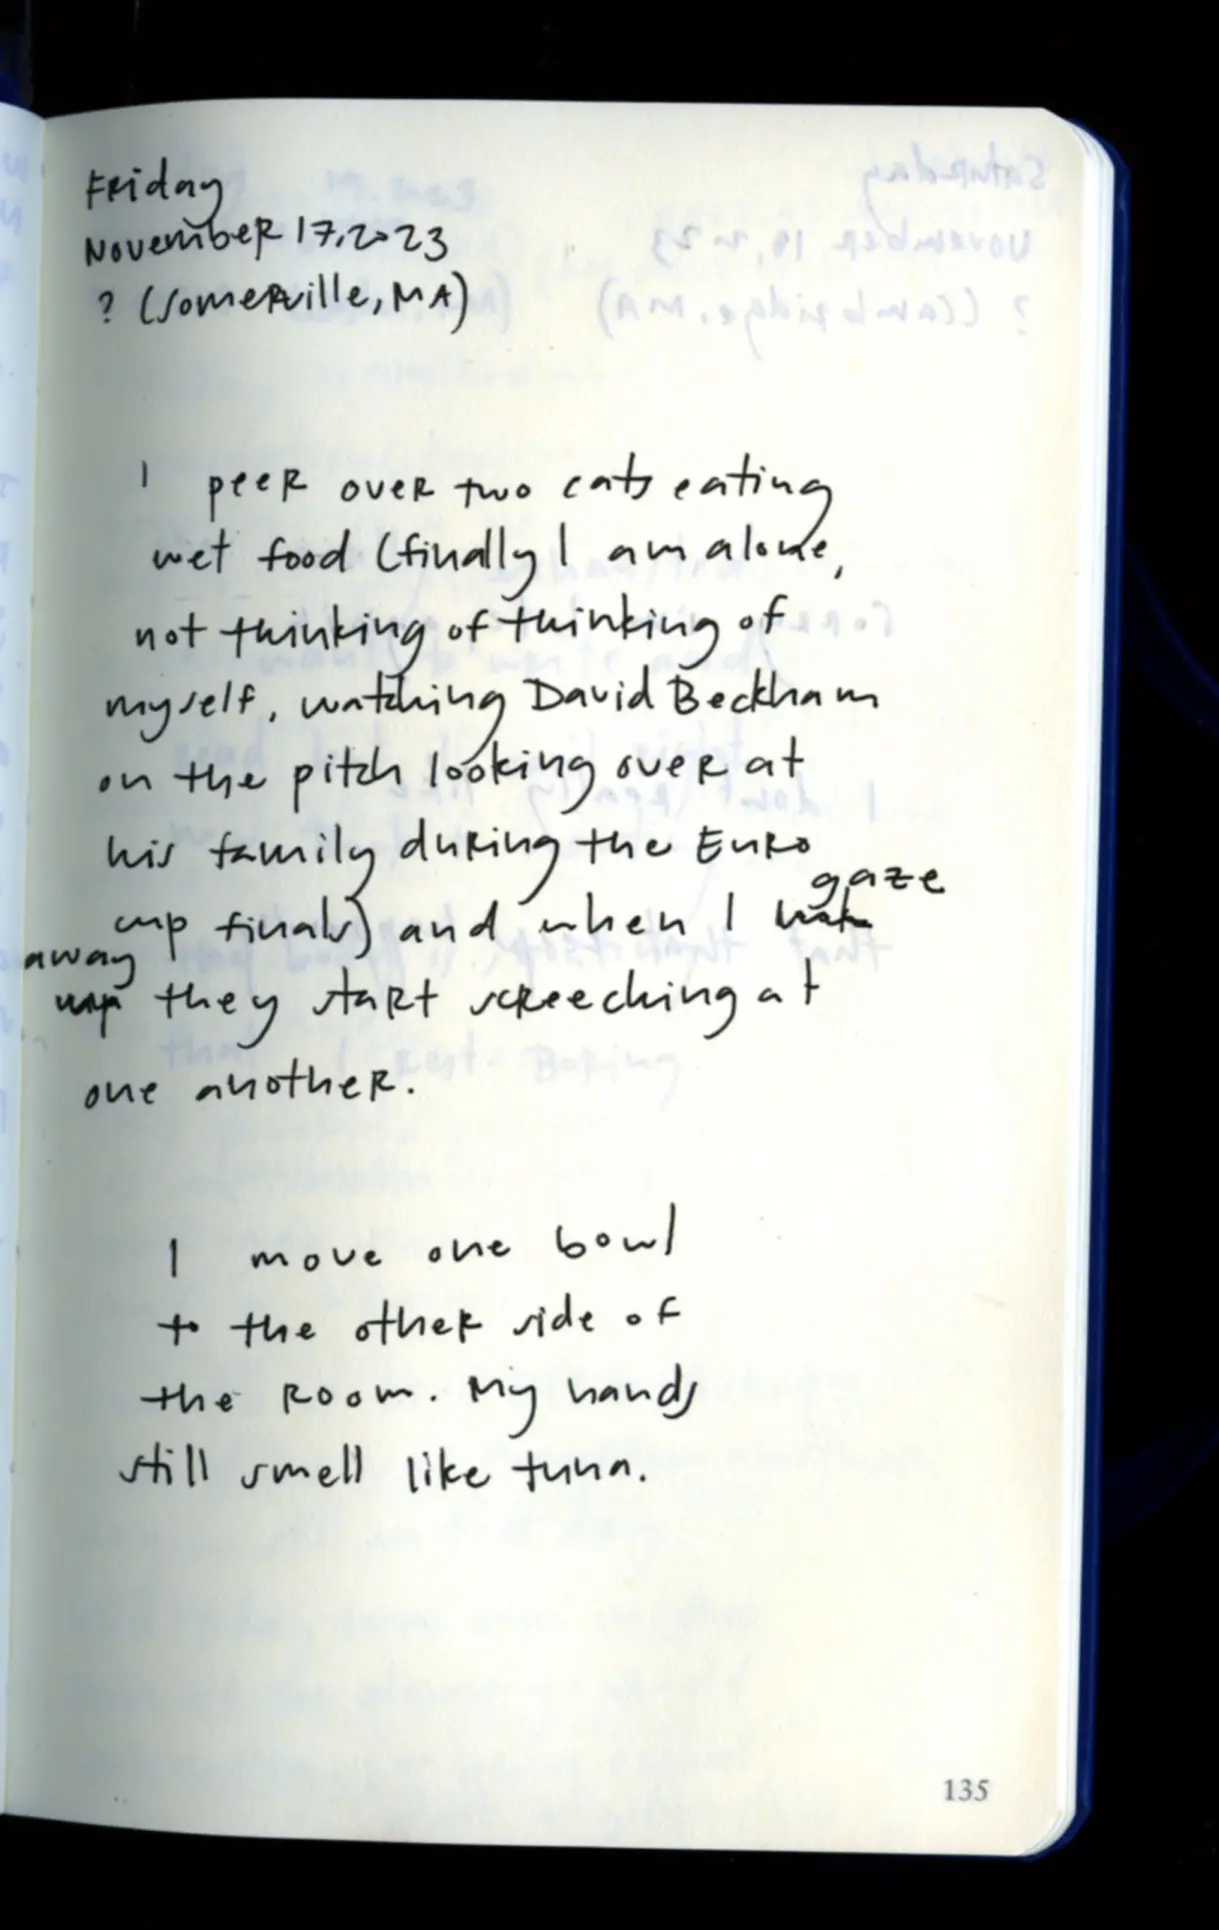 Friday
November 17, 2023
? (Somerville, MA)
I peer over two cats eating
wet food (finally I am alone,
not thinking of thinking of
myself, watching David Beckham
on the pitch looking over at
his family during the Euro
cup finals) and when I gaze
away they start screeching at
one another.
I move one bowl
to the other side of
the room. My hands
still smell like tuna.
135